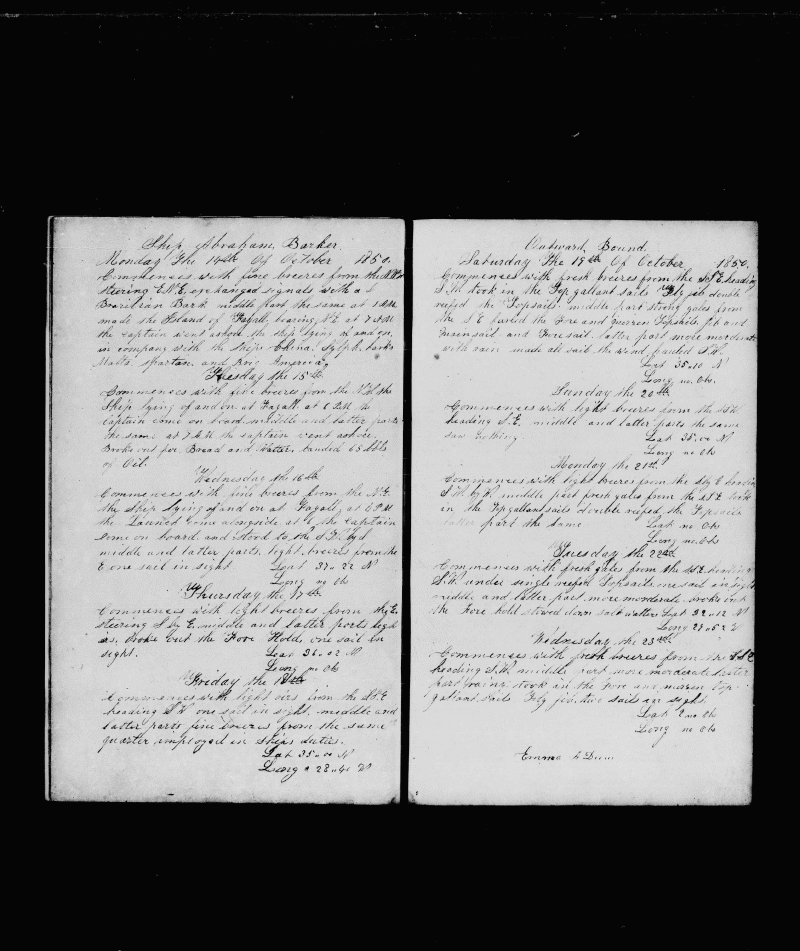 Ship Abraham Barker
Monday The 14th Of October 1850.
Commences with fine breezes from the
steering E.N.E. exchanged signals with a
Brazilian Bark middle part the same at 1 AM
made the Island of Fayall bearing N.E at 7 AM
the captain went ashore the ship lying of and on,
in company with the ships China, Sylph, barks
Malta, Spartan, and America,
Tuesday the 15th
Commences with fine breezes from the the
Ship lying of and on at Fayall at 6 PM the
captain come on board middle and latter parts
the same at 7 AM the captain went ashore
Broke out for Bread and Water, landed 65 bbls
of Oil.
Wednesday the 16th
Commences with fine breezes from the N.E.
the Ship lying of and on at Fayall, at 6 PM
the Launch come alongside at the Captain
come on board and stood to the
middle and latter parts, light breezes from the
E one sail in sight Lat 37 22 N
Long no Obs
Thursday the 17th
Commences with light breezes from the E.
steering S by E. middle and latter parts light
airs, Broke out the Fore Hold, one sail in
sight. Lat 36 02 N
Long no Obs
Friday the 18th
Commences with light airs from the
heading one sail in sight, middle and
latter parts fine breezes from the same
quarter imployed in Ships duties.
Lat 35 00 N
Long 28 41 W
Outward Bound
Saturday The 19th Of October 1850.
Commences with fresh breezes from the S.E. heading
S.W. took in the Top gallant sails Fly jib double
reefed the Topsails middle part strong gales from
the S.E furled the Fore and Topsails jib and
mainsail and Foresail latter part more morderate
with rain made all sail the wind hauled S.W.
Lat 35 10 N
Long no Obs.
Sunday the 20th
Commences with light breezes from the
heading S.E. middle and latter parts the same
saw nothing Lat 35 00 N
Long no Obs
Monday the 21st
Commences with light breezes from the S by E heading
S.W. by W. middle part fresh gales from the S.E took
in the Top gallant sails double reefed the Topsails
latter part the same Lat no Obs
Long no Obs
Tuesday the 22nd
Commences with fresh gales from the S.E. heading
S.W. under single reefed Topsails one sail in sight
middle and latter part more morderate broke out
the Fore hold stowed down salt water Lat 32 12 N
Long 29 52 W
Wednesday the 23rd
Commences with fresh breezes from the S.S.E
heading S.W. middle part more morderate latter
part took in the Fore and Top-
gallant sails Fly jib, five sails in sight.
Lat no Obs
Long no Obs
Emma